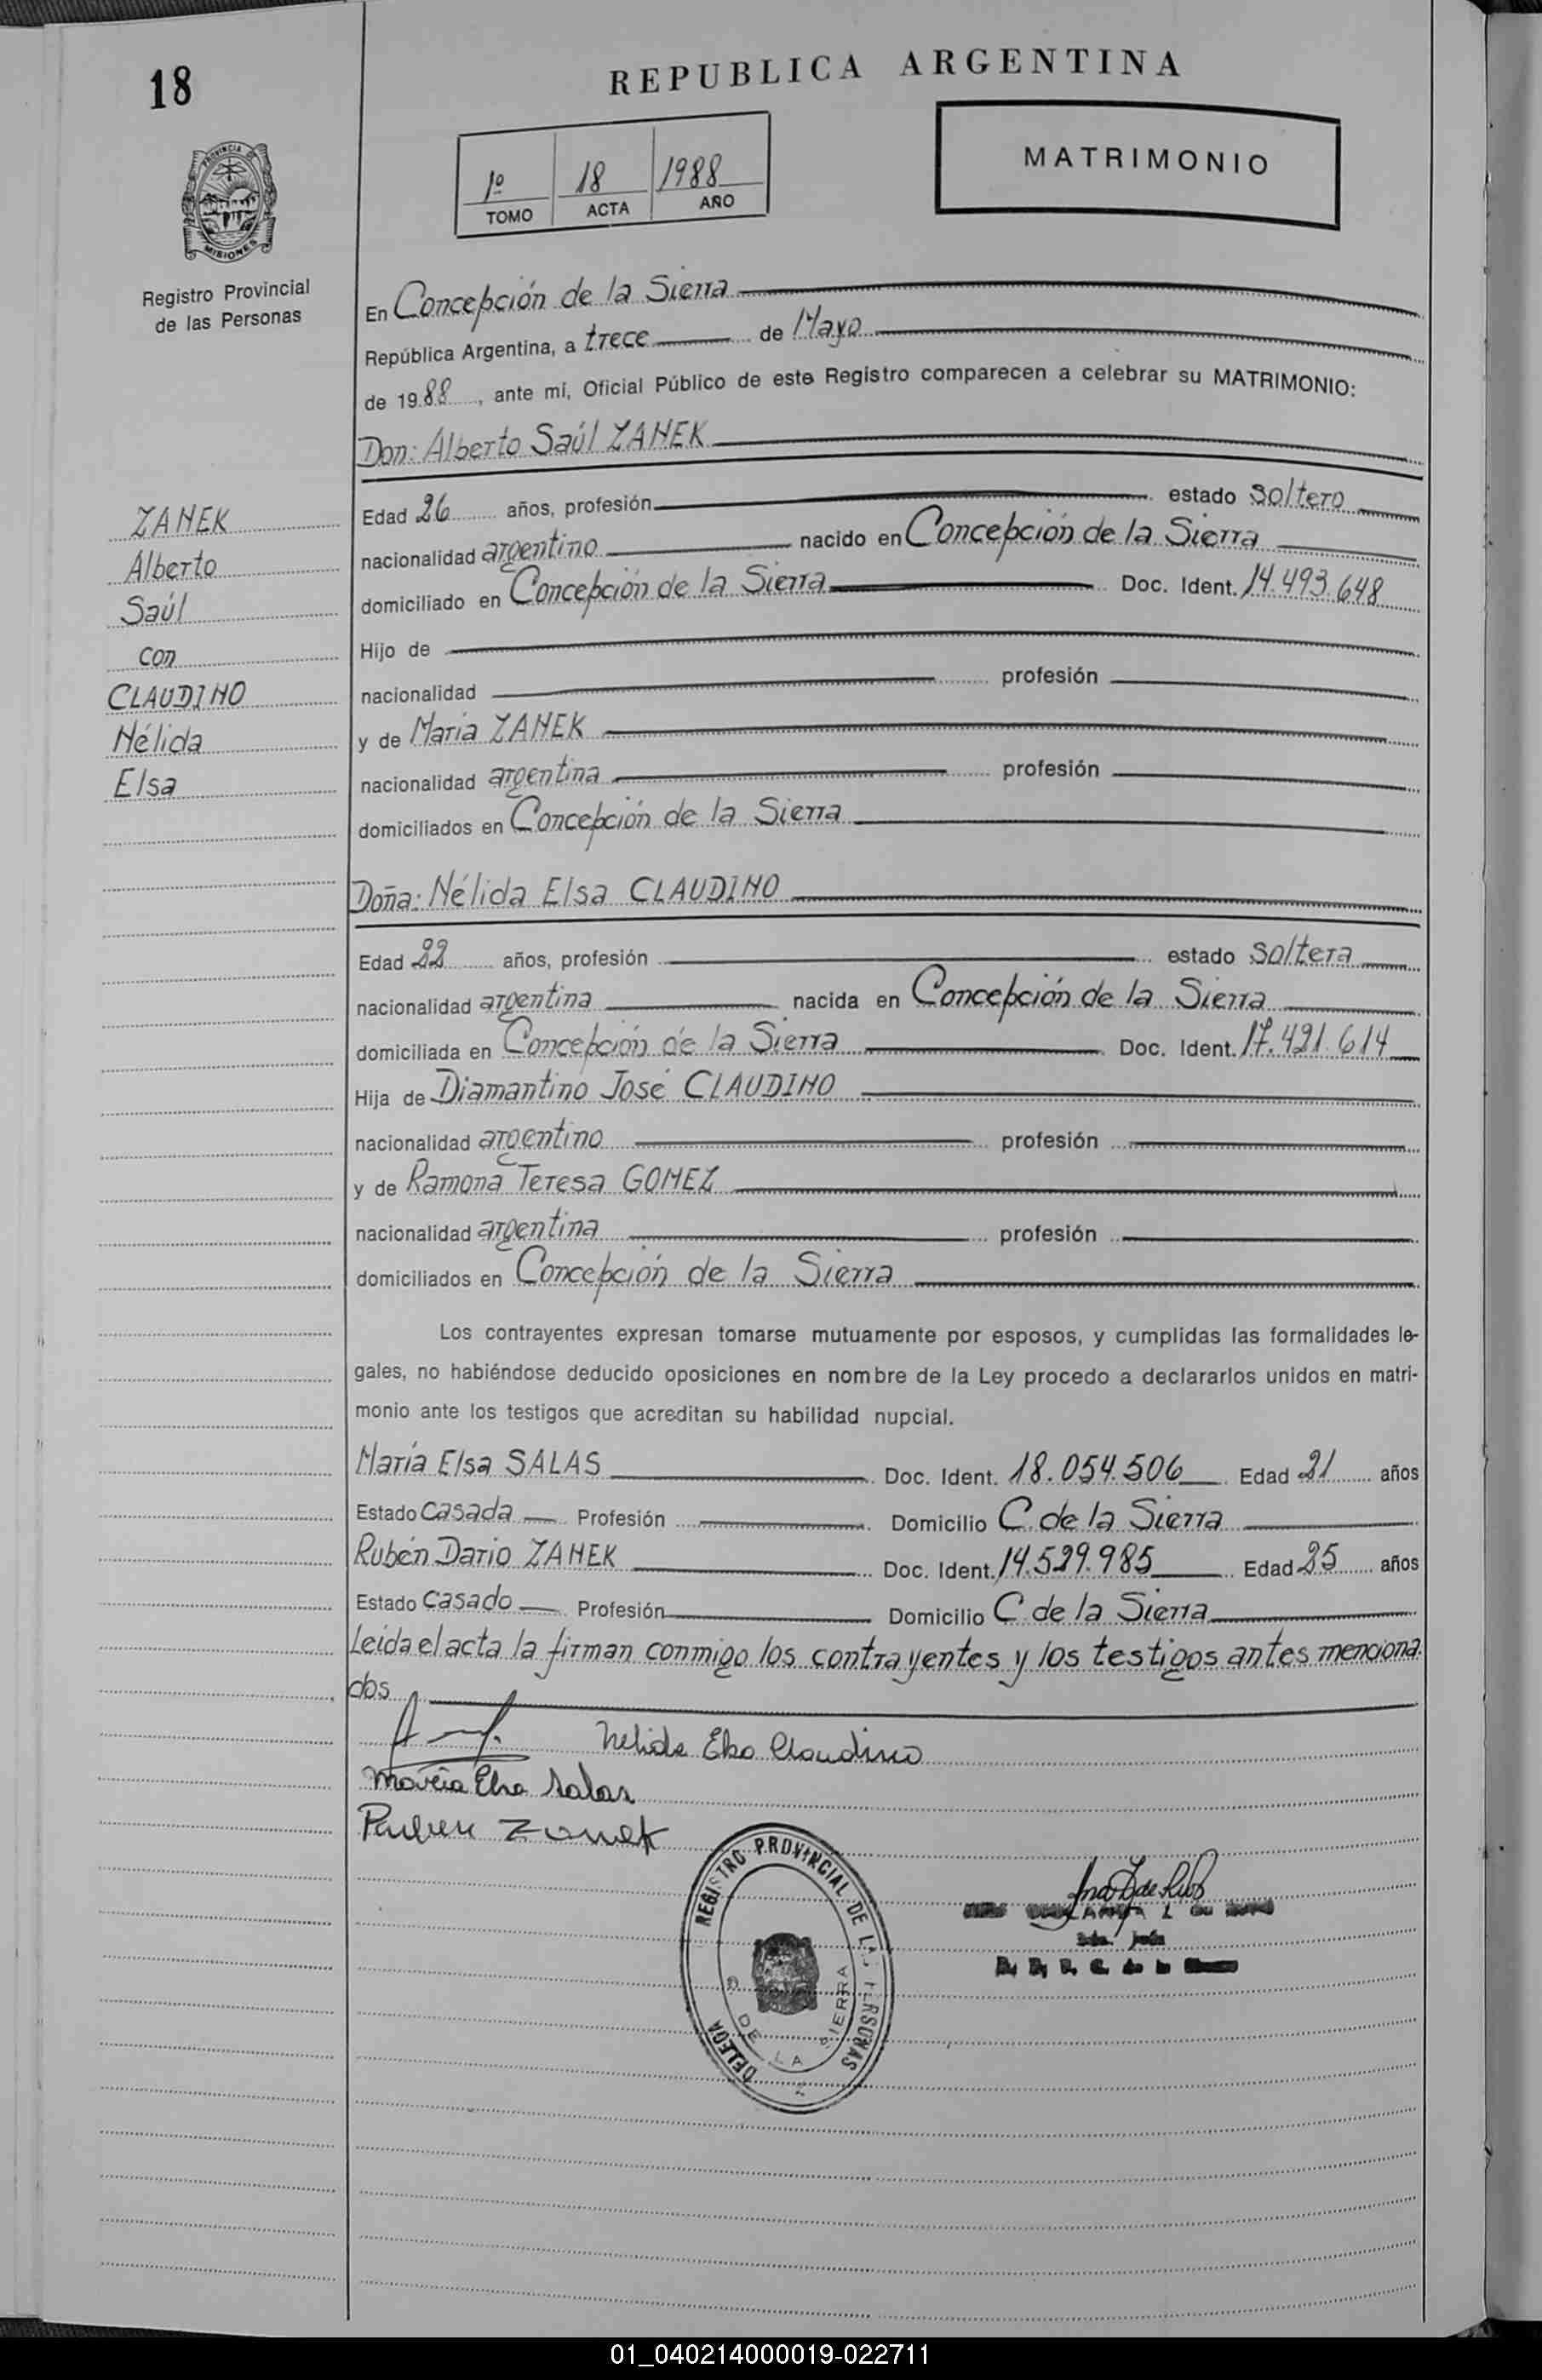 18
REPUBLICA ARGENTINA
MATRIMONIO
1º 18 1988
TOMO ACTA AÑO
PROVINCIA DE
MISIONES
Registro Provincial
de las Personas
En Concepción de la Sierra
República Argentina, a trece de Mayo
de 1988, ante mí, Oficial Público de este Registro comparecen a celebrar su MATRIMONIO:
Don: Alberto Saúl ZANEK
ZANEK
Alberto
Saúl
con
CLAUDINO
Nélida
Elsa
Edad 26 años, profesión estado soltero
nacionalidad argentino nacido en Concepción de la Sierra
domiciliado en Concepción de la Sierra Doc. Ident. 14.493.648
Hijo de
nacionalidad profesión
y de María ZANEK
nacionalidad argentina profesión
domiciliados en Concepción de la Sierra
Doña: Nélida Elsa CLAUDINO
Edad 22 años, profesión estado soltera
nacionalidad argentina nacida en Concepción de la Sierra
domiciliada en Concepción de la Sierra Doc. Ident. 17.421.614
Hija de Diamantino José CLAUDINO
nacionalidad argentino profesión
y de Ramona Teresa GOMEZ
nacionalidad argentina profesión
domiciliados en Concepción de la Sierra
Los contrayentes expresan tomarse mutuamente por esposos, y cumplidas las formalidades le-
gales, no habiéndose deducido oposiciones en nombre de la Ley procedo a declararlos unidos en matri-
monio ante los testigos que acreditan su habilidad nupcial.
María Elsa SALAS Doc. Ident. 18.054.506 Edad 21 años
Estado casada Profesión Domicilio C. de la Sierra
Rubén Dario ZANEK Doc. Ident. 14.529.985 Edad 25 años
Estado casado Profesión Domicilio C. de la Sierra
Leída el acta la firman conmigo los contrayentes y los testigos antes menciona
dos
Nelida Elsa Claudino
María Elsa Salas
Ruben Zanek
REGISTRO PROVINCIAL DE LAS PERSONAS
DE LA SIERRA
01_040214000019-022711